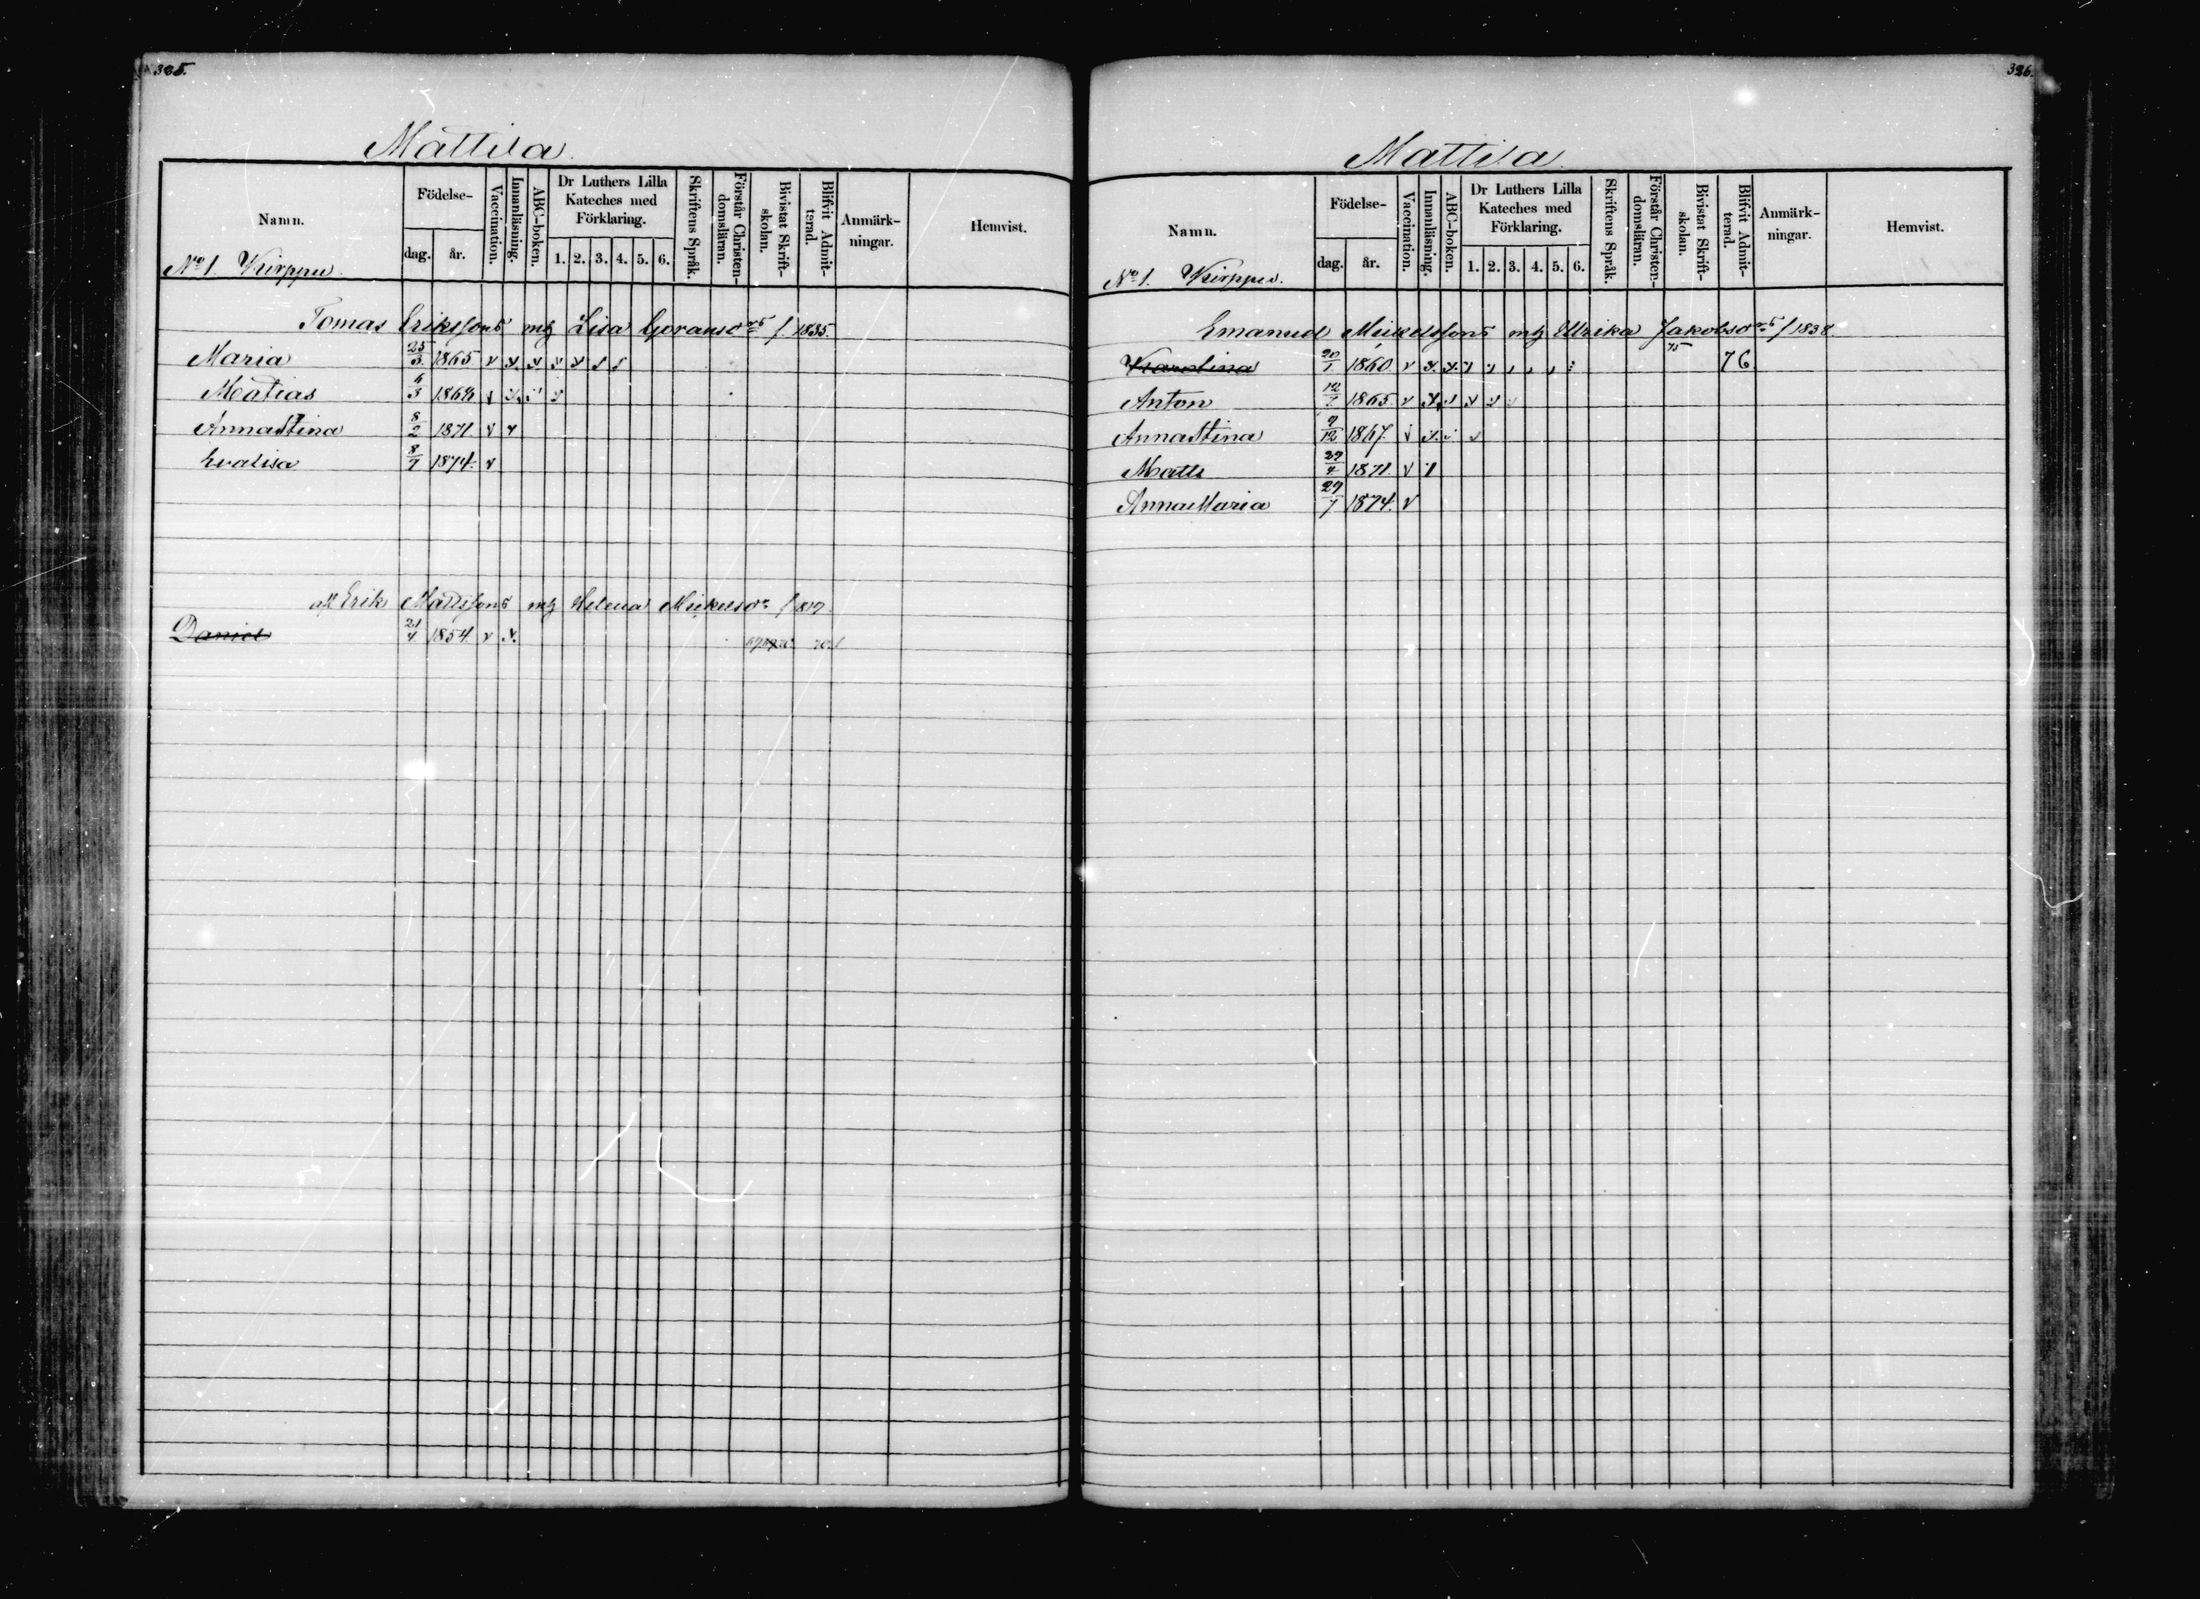 325.
Mattila
Namn.
Födelse-
dag.
år.
Vaccination.
Innanläsning.
ABC-boken.
Dr Luthers Lilla
Kateches med
Förklaring.
1. 2. 3. 4. 5. 6.
Skriftens Språk.
Förstår Christen-
domsläran.
Bivistat Skrift-
skolan.
Blifvit Admit-
terad.
Anmärk-
ningar.
Hemvist.
No 1. Kirppu.
Tomas Erikssons mg Lisa Göransdrs f. 1835.
Maria 25/3 1865 v
Matias 1868 v
Annastina 8/2 1871. v
Evalisa 8/7 1874. v
Erik Mattssons mg Helena Mickelsdr f 1817
Daniel 21/4 1854. v
326.
Mattila
Namn.
Födelse-
dag.
år.
Vaccination.
Innanläsning.
ABC-boken.
Dr Luthers Lilla
Kateches med
Förklaring.
1. 2. 3. 4. 5. 6.
Skriftens Språk.
Förstår Christen-
domsläran.
Bivistat Skrift-
skolan.
Blifvit Admit-
terad.
Anmärk-
ningar.
Hemvist.
No 1. Kirppu.
Emanuel Mickelssons mg Ulrika Jakobsdrs f 1838.
Karolina 20/1 1860. v 75 76
Anton 12/7 1865. v
Annastina 9/12 1867. v
Matts 1871. v
Anna Maria 27/7 1874. v